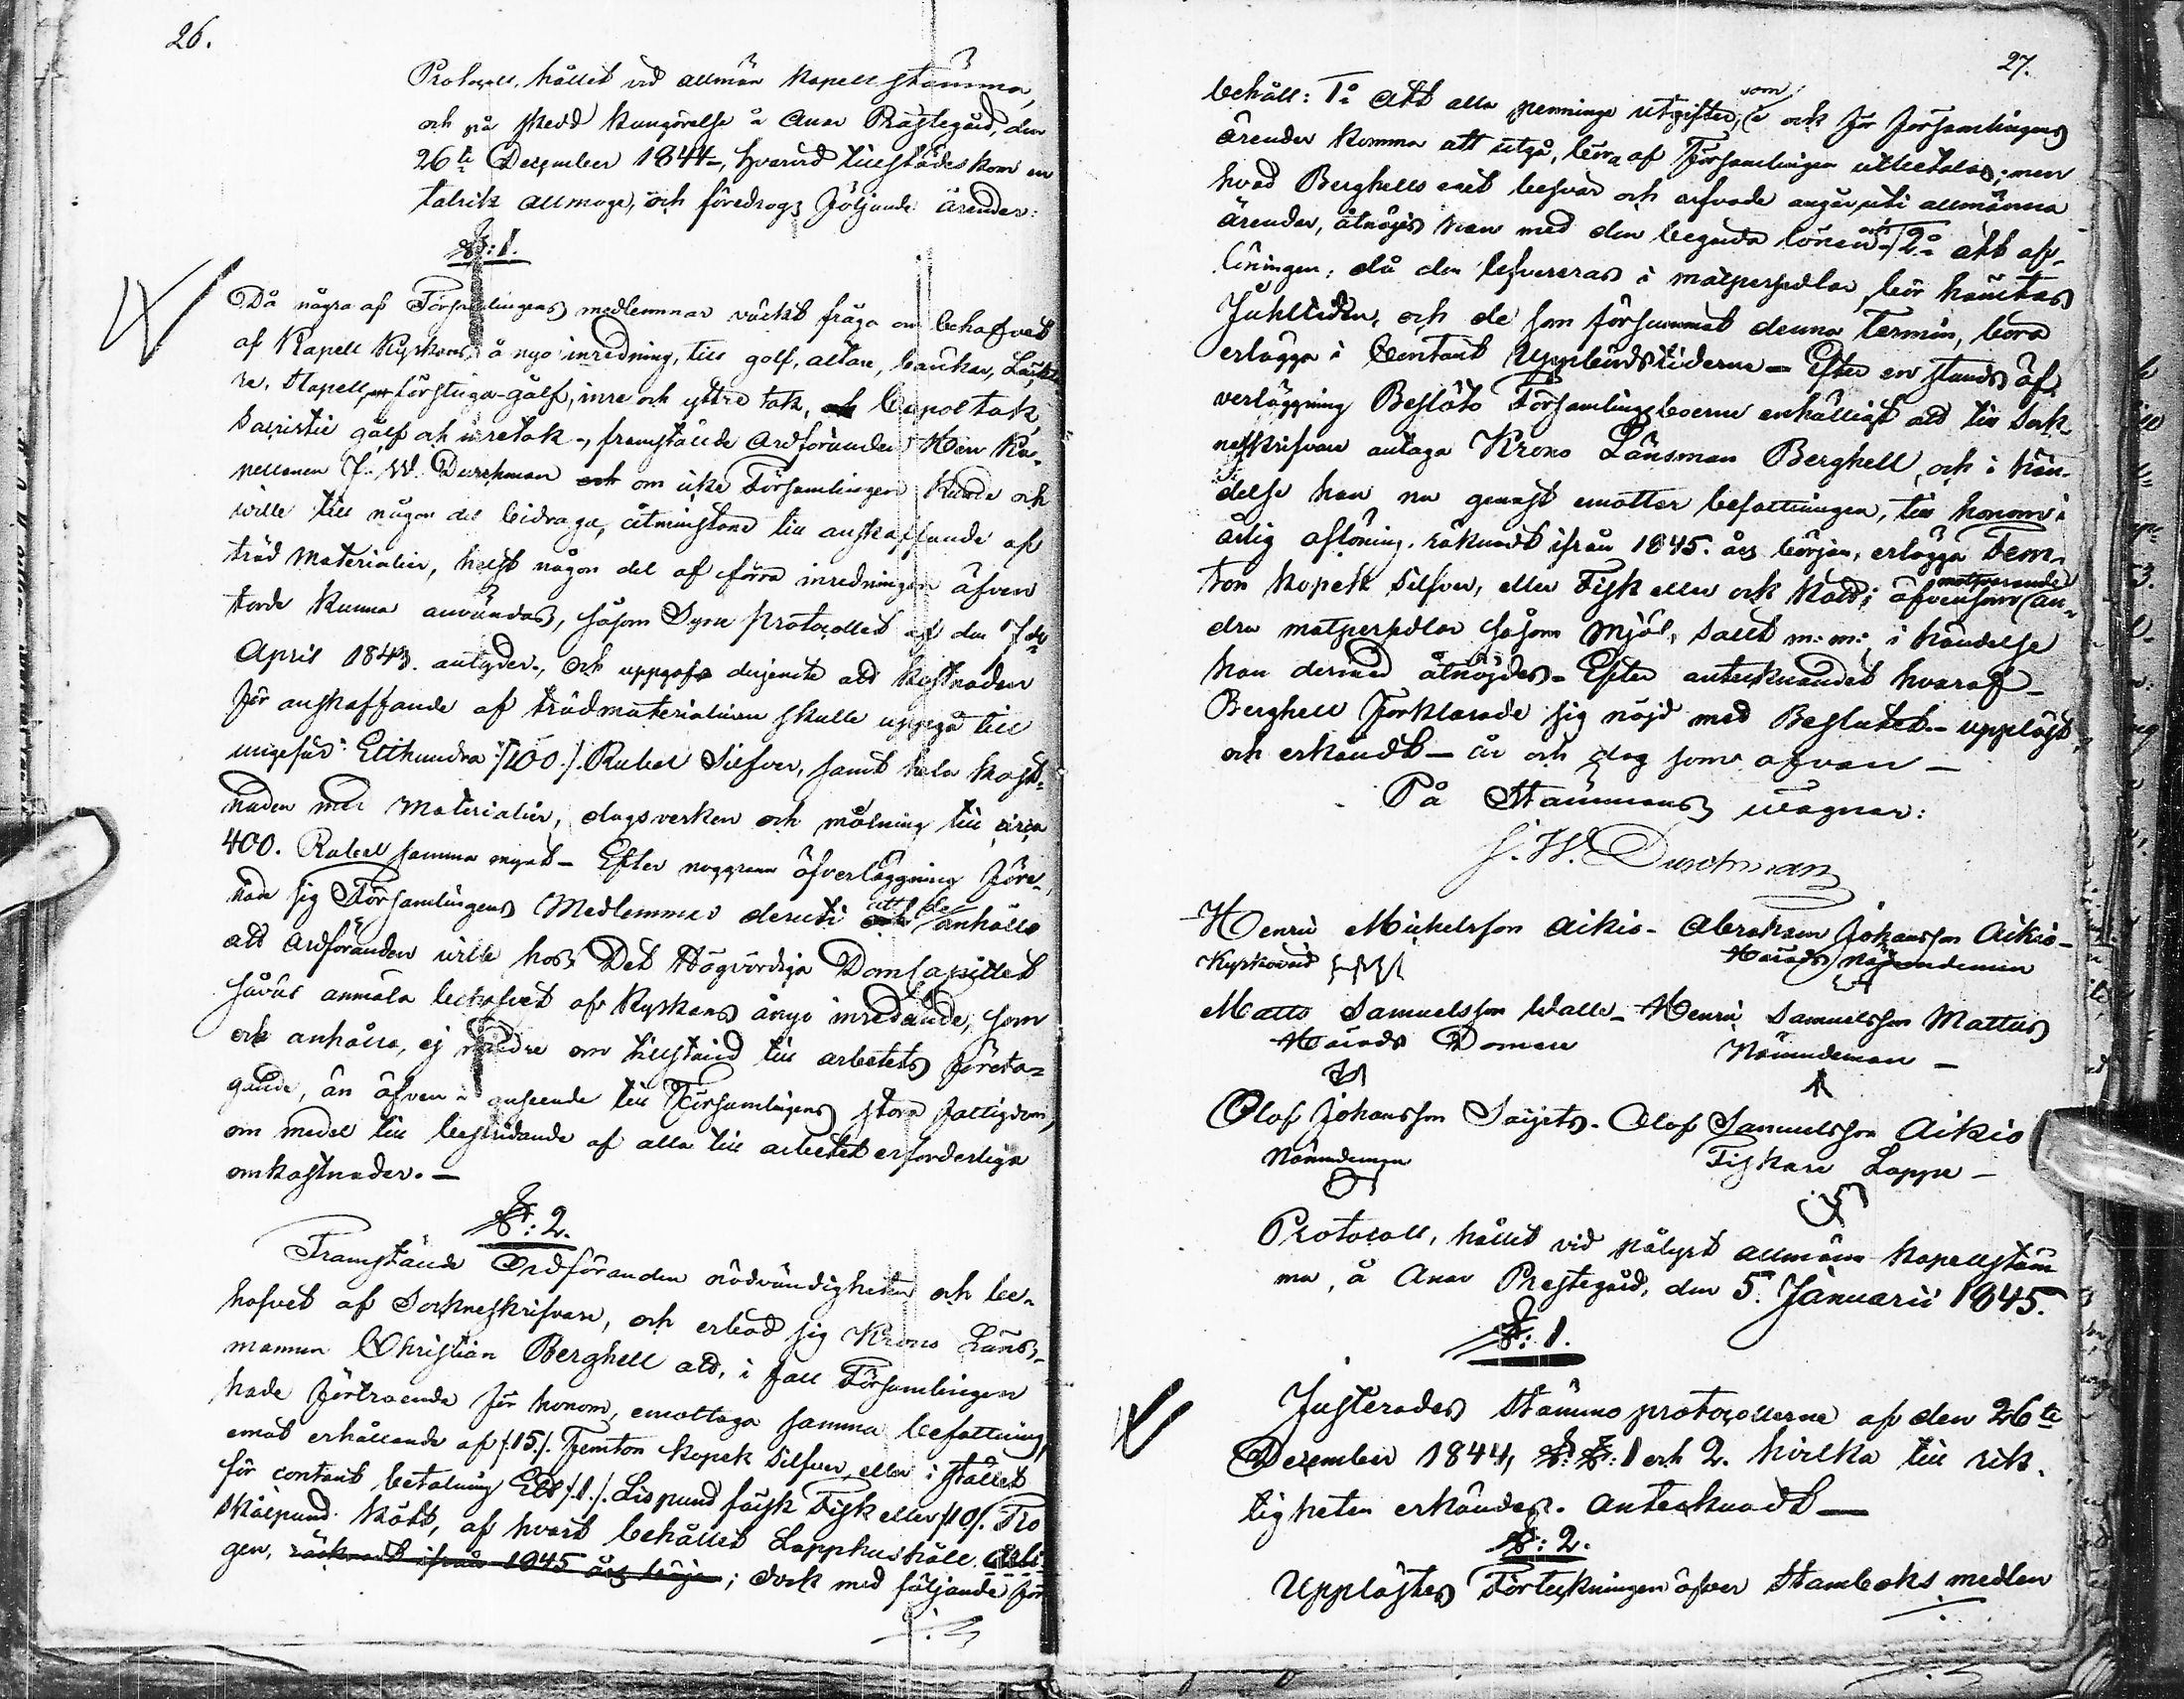 26.
Protocoll, hållet vid allmän Kapell stämma,
och på skedd kungörelse å Enar Prästegård, den
26te December 1844, hvarvid tillstädes kom en
talrik allmoge, och föredrogs följande ärender:
§: 1.
Då några af Församlingens medlemmar väckt fråga om behofvet
af Kapell Kyrkans å nyo inredning, till golf, altare, bänkar, Läkta-
re, Stapell, förstuga-gålf, inre och yttre tak,
Sacristie gålf och inretak, framstälde Ordföranden Herr Ka-
pellanen J. W. Durchman om icke Församlingen kunde och
wille till någon del bidraga, åtminstone till anskaffande af
träd Materialier, helst någon del af förra inredningen äfven
torde kunna användas, såsom Syne protocollet af den 7de
April 1843. antyder, och uppgafs derjemte att kostnaden
för anskaffande af trädmaterialierne skulle uppgå till
ungefär Etthundra /:100:/ Rubel Silfver, samt hela kost-
naden med Materialier, dagsverken och målning till circa
400. Rubel samma mynt - Efter noggrann öfverläggning före-
nade sig Församlingens Medlemmar deruti att de anhålla
att Ordföranden wille hos Det Högvördiga DomCapitlet
såväl anmäla behofvet af Kyrkans ånyo inredande, som
ock anhålla, ej mindre om tillstånd till arbetets företa-
gande, än äfven i anseende till Församlingens stora fattigdom,
om medel till bestridande af alla till arbetet erforderliga
omkostnader. -
§: 2.
Framstälde Ordföranden nödvändigheten och be-
hofvet af Sockneskrifvare, och erböd sig Krono Läns-
mannen Christian Berghell att, i fall Församlingen
hade förtroende för honom, emottaga samma befattning,
emot erhållande af /:15:/ Femton kopek silfver, eller i stället
för contant betalning Ett /:1:/ Lispund färsk Fisk eller /:10:/ Tio
Skålpund Kött, af hvart behållet Lapphushåll årli-
gen, räknadt ifrån 1845 års början; dock med följande för
27.
behåll: 1o att alla penninge utgifter, som ock för Församlingens
ärender komma att utgå, böra af Församlingen utbetalas; men
hvad Berghells eget besvär och arfvode angår, uti allmänna
ärender, åtnöjes han med den begärda lönen och 2o att af-
löningen, då den lefvereras i matpersedlar, bör hämtas
Juhltiden, och de som försummat denna Termin, böra
erlägga i Contant Uppbördstiderne - Efter en stunds öf-
verläggning Beslöto Församlingsboerne enhälligt att till Sock-
neskrifvare antaga Krono Länsman Berghell, och i hän-
delse han nu genast emottar befattningen, till honom i
årlig aflöning, räknadt ifrån 1845. års början, erlägga Fem-
ton kopek Silfver, eller Fisk eller ock Kött; äfvensom motsvarande an-
dra matpersedlar såsom mjöl, salt m: m: i händelse
han dermed åtnöjdes - Efter antecknandet hvaraf
Berghell förklarade sig nöjd med Beslutet. - uppläst,
och erkändt - år och dag som ofvan -
På Stämmans wägnar:
J. W. Durchman
Henric Michelsson Aikio - Abraham Johansson Aikio -
Kyrkovärd Härads Nämndeman
Matts Samuelsson Walle - Henric Samuelsson Mattus
Härads Domare Nämndeman -
Olof Johansson Saijets - Olof Samuelsson Aikio
Nämndeman Fiskare Lappe -
Protocoll, hållet vid pålyst allmän Kapellstäm-
ma, å Enar Prestegård, den 5. Januarii 1845.
§: 1.
Justerades Stämmo protocollerne af den 26te
December 1844, §: §: 1 och 2. hvilka till rik-
tigheten erkändes. Antecknadt -
§: 2.
Upplästes Förteckningen öfver Stamboks medlen